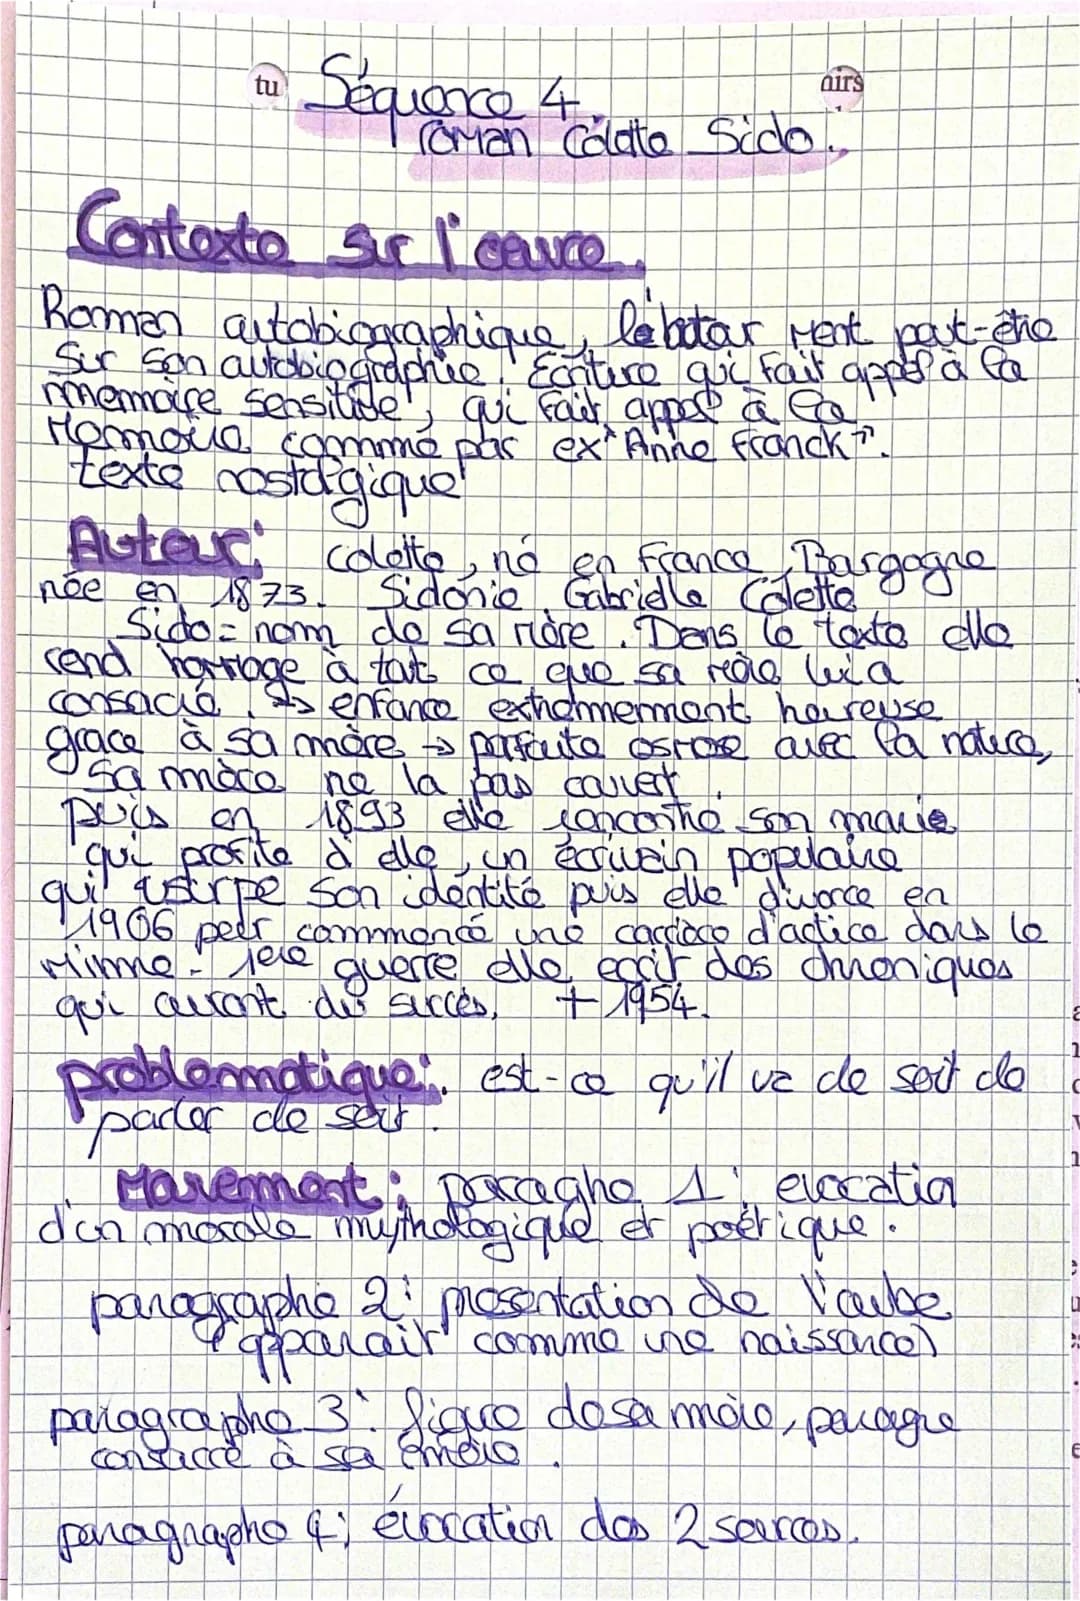 tu
nirs
Séquence 4
roman Colette Sido.
Contexte sur l'œuvre.
Roman autobiographique, le auteur ment peut-être
sur son autobiographie. Écriture qui fait appel à la
mémoire sensitive, qui fait appel à la
Memoire comme par ex "Anne Franck".
texte nostalgique
Auteur: Colette, né en France, Bourgogne
née en 1873. Sidonie Gabrielle Colette
Sido = nom de sa mère. Dans le texte elle
rend hommage à tout ce que sa mère lui a
consacré. → enfance extremmement heureuse
grace à sa mère → parfaite osmose avec la nature,
sa mère ne la pas couvert.
puis en 1893 elle rencontre son marie
qui profite d'elle, un écrivain populaire
qui usurpe son identité puis elle divorce en
1906 pour commencé une carrière d'actice dans le
mimme. 1ere guerre elle ecrit des chroniques
qui auront du succès. + 1954.
problematique: est-ce qu'il va de soit de
parler de soit.
Mouvement: paragphe 1: evocation
d'un monde mythologique et poétique.
paragraphe 2: presentation de l'aube
(apparait comme une naissance)
paragraphe 3: figure de sa mère, paragre
consacré à sa mère.
paragraphe 4; évocation des 2 sources.